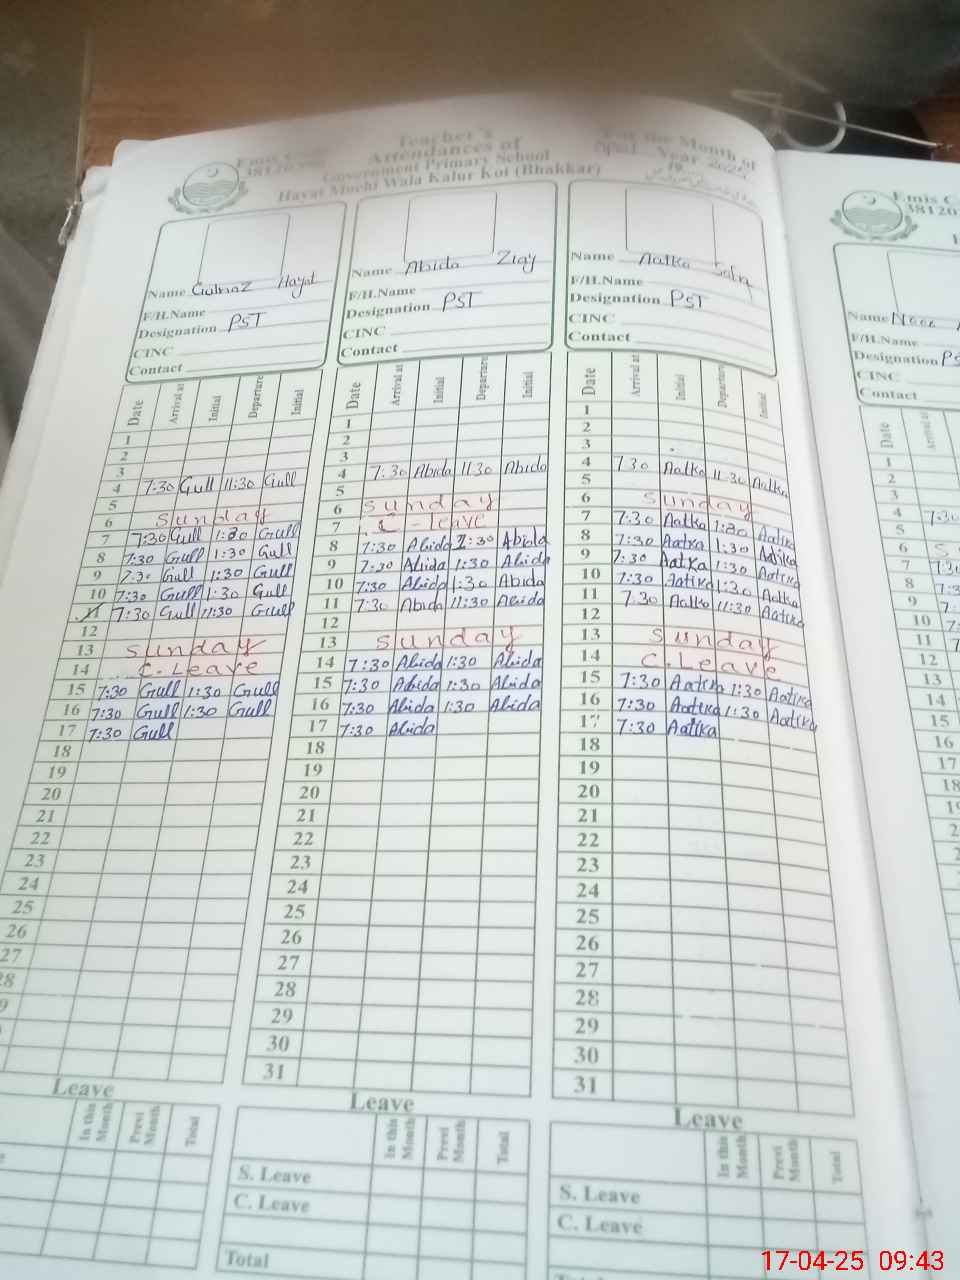 Teacher's
Attendances of
Government Primary School
Hayat Mochi Wala Kalur Kot (Bhakkar)
For the Month of
April Year 2025
Emis C
38120
Name Gulnaz Hayat
F/H.Name
Designation PST
CINC
Contact
Date Arrival at Initial Departure Initial
1
2
3
4 7:30 Gull 11:30 Gull
5
6 Sunday
7 7:30 Gull 1:30 Gull
8 7:30 Gull 1:30 Gull
9 7:30 Gull 1:30 Gull
10 7:30 Gull 1:30 Gull
11 7:30 Gull 11:30 Gull
12
13 Sunday
14 C. Leave
15 7:30 Gull 1:30 Gull
16 7:30 Gull 1:30 Gull
17 7:30 Gull
18
19
20
21
22
23
24
25
26
27
28
9
Leave
In this Month Previ Month Total
Name Abida Ziay
F/H.Name
Designation PST
CINC
Contact
Date Arrival at Initial Departure Initial
1
2
3
4 7:30 Abida 11:30 Abida
5
6 Sunday
7 C - Leave
8 7:30 Abida 1:30 Abida
9 7:30 Abida 1:30 Abida
10 7:30 Abida 1:30 Abida
11 7:30 Abida 11:30 Abida
12
13 Sunday
14 7:30 Abida 1:30 Abida
15 7:30 Abida 1:30 Abida
16 7:30 Abida 1:30 Abida
17 7:30 Abida
18
19
20
21
22
23
24
25
26
27
28
29
30
31
Leave
In this Month Previ Month Total
S. Leave
C. Leave
Total
Name Aatka
F/H.Name
Designation PST
CINC
Contact
Date Arrival at Initial Departure Initial
1
2
3
4 7 30 Aatka 11:30 Aatka
5
6 Sunday
7 7:30 Aatka 1:30 Aatika
8 7:30 Aatka 1:30 Aatika
9 7:30 Aatka 1:30 Aatika
10 7:30 Aatika 1:30 Aatka
11 7.30 Aatka 11:30 Aatika
12
13 Sunday
14 C. Leave
15 7:30 Aatika 1:30 Aatika
16 7:30 Aatika 1:30 Aatika
17 7:30 Aatika
18
19
20
21
22
23
24
25
26
27
28
29
30
31
Leave
In this Month Previ Month Total
S. Leave
C. Leave
Emis C
38120
Name
F/H.Name
Designation PS
CINC
Contact
Date Arrival at
1
2
3
4 7:30
5
6 S
7 7:30
8 7:3
9 7:
10 7:
11 7
12
13
14
15
16
17
18
17-04-25 09:43